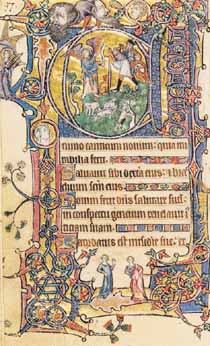 mino canticum nouum: quia mi
rabilia fecit.
Saluauit sibi dextera eius: & bra
chium scm eius.
Notum fecit dns salutare suum:
in conspectu gencium reuelauit
iusticiam suam.
Recordatus est sue: